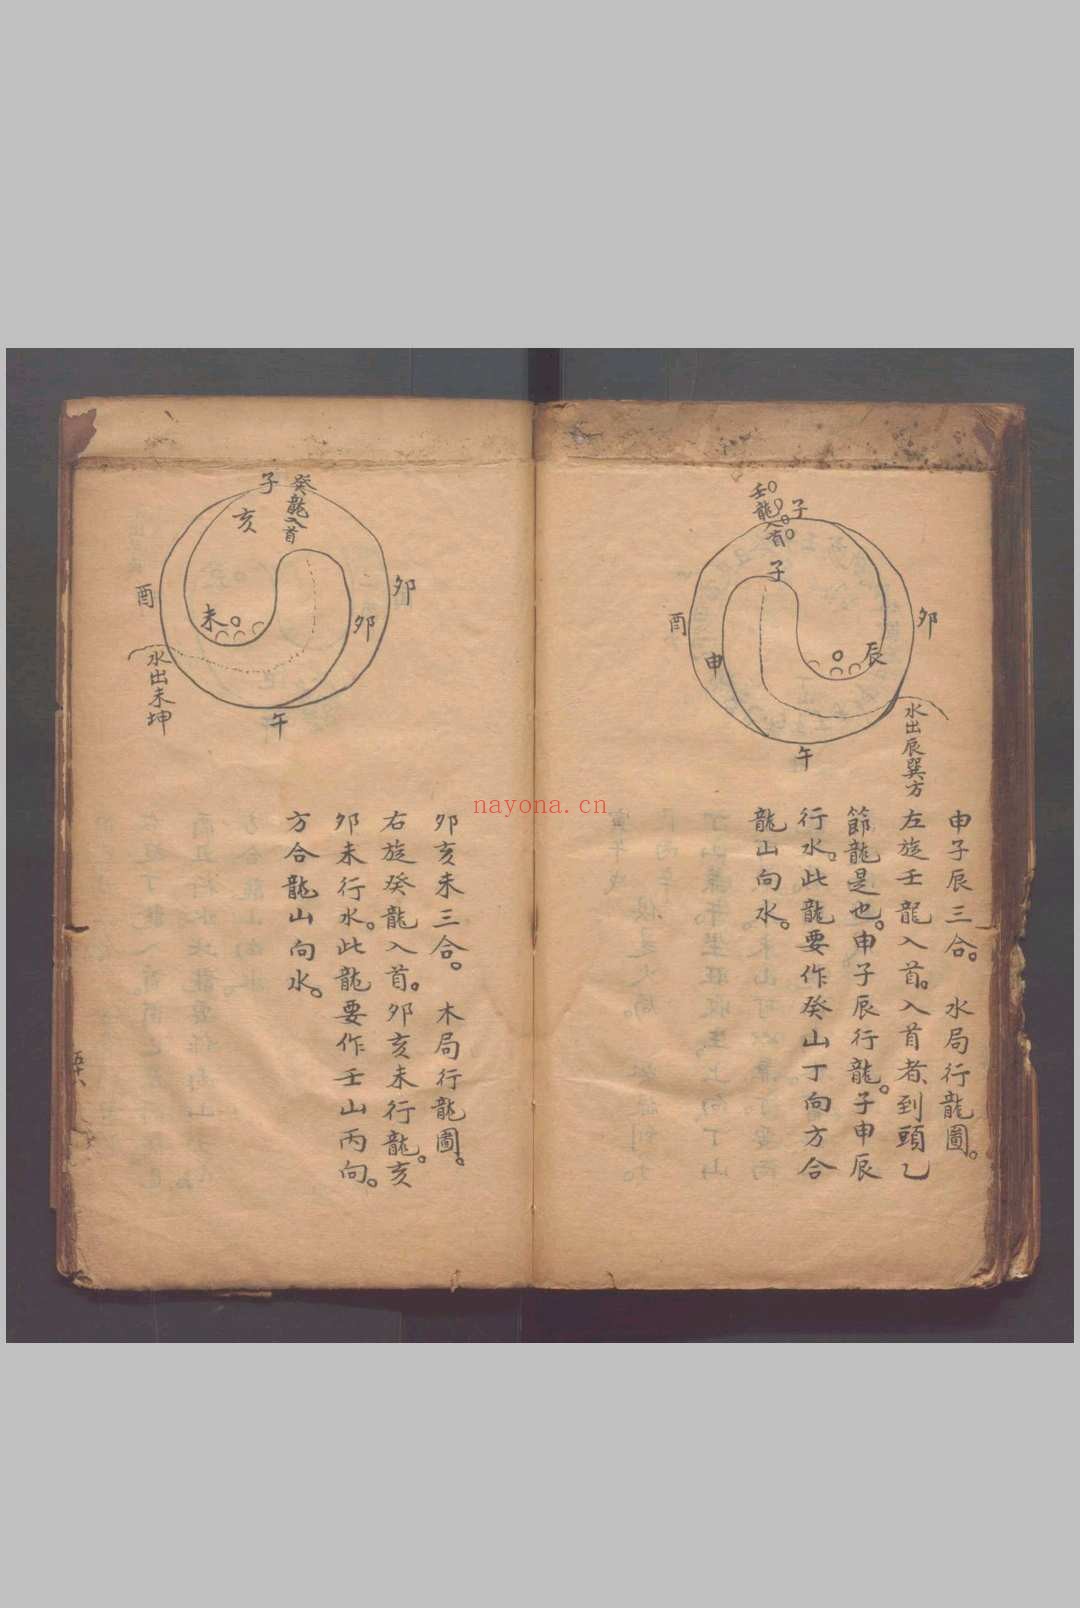 壬龍入首
子
子
酉
卯
申
辰
午
水出辰巽方
申子辰三合。 水局行龍圖。
左旋壬龍入首。入首者到頭乙
節龍是也。申子辰行龍。子申辰
行水。此龍要作癸山丁向方合
龍山向水。
子
癸龍入首
亥
酉
卯
卯
未
水出未坤
午
卯亥未三合。 木局行龍圖。
右旋癸龍入首。卯亥未行龍。亥
卯未行水。此龍要作壬山丙向。
方合龍山向水。
nayona.cn